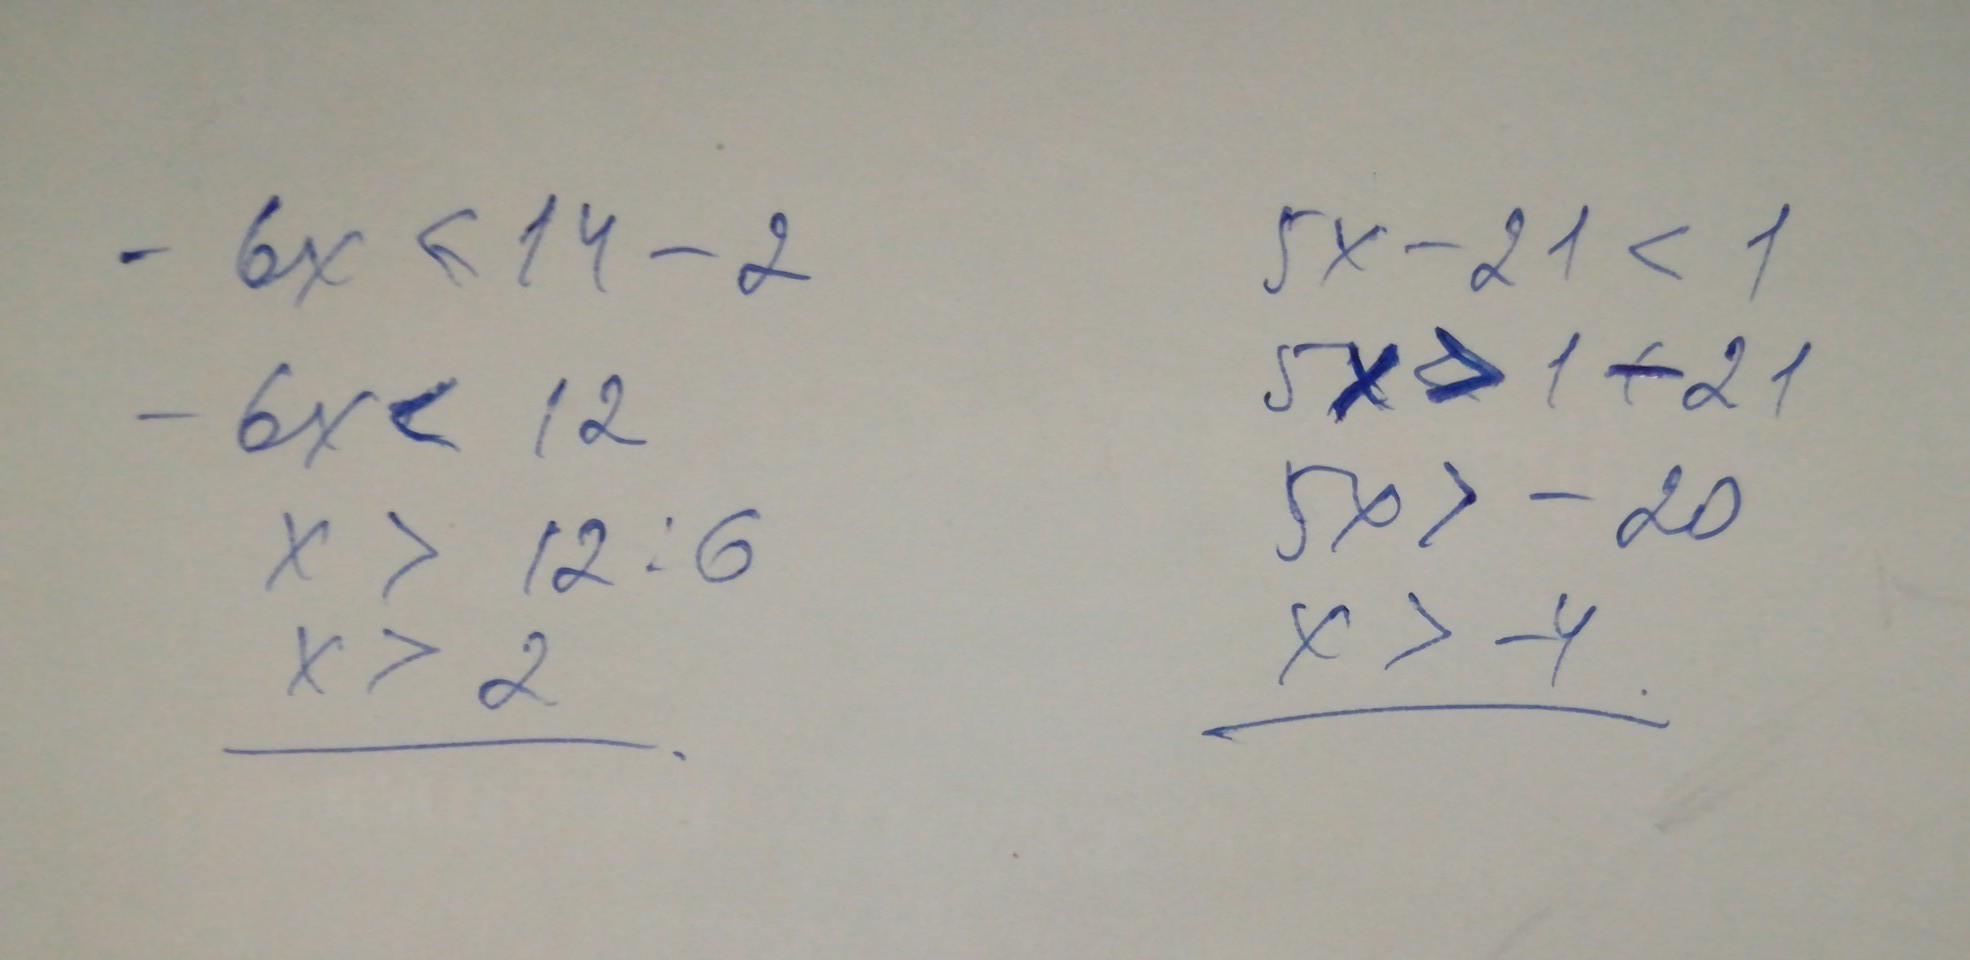 - 6x < 14 - 2
- 6x < 12
x > 12 : 6
x > 2
5x - 21 < 1
5x > 1 - 21
5x > - 20
x > -4.